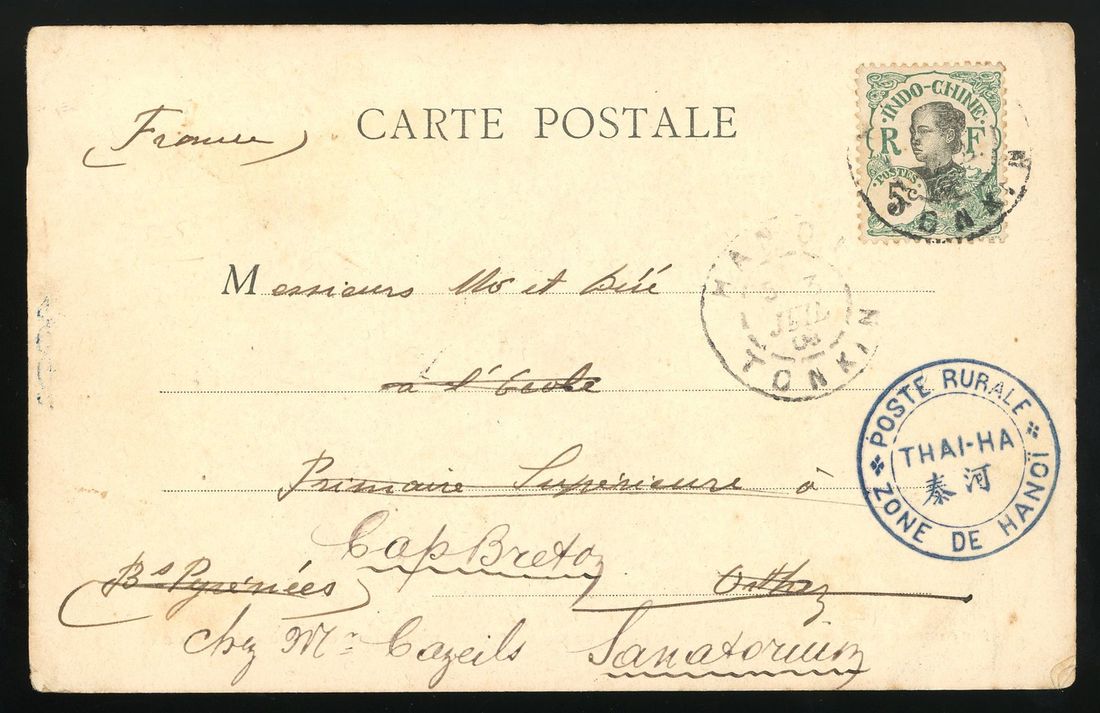 CARTE POSTALE
France
INDO-CHINE
R F
POSTES
5
TONKIN
HANOI
3
JUIL
08
TONKIN
Messieurs et
à l'École
Primaire Supérieure à
Capbreton
Bs Pyrénées Orthez
chez Mr Cazeils Sanatorium
POSTE RURALE
THAI-HA
泰河
ZONE DE HANOÏ